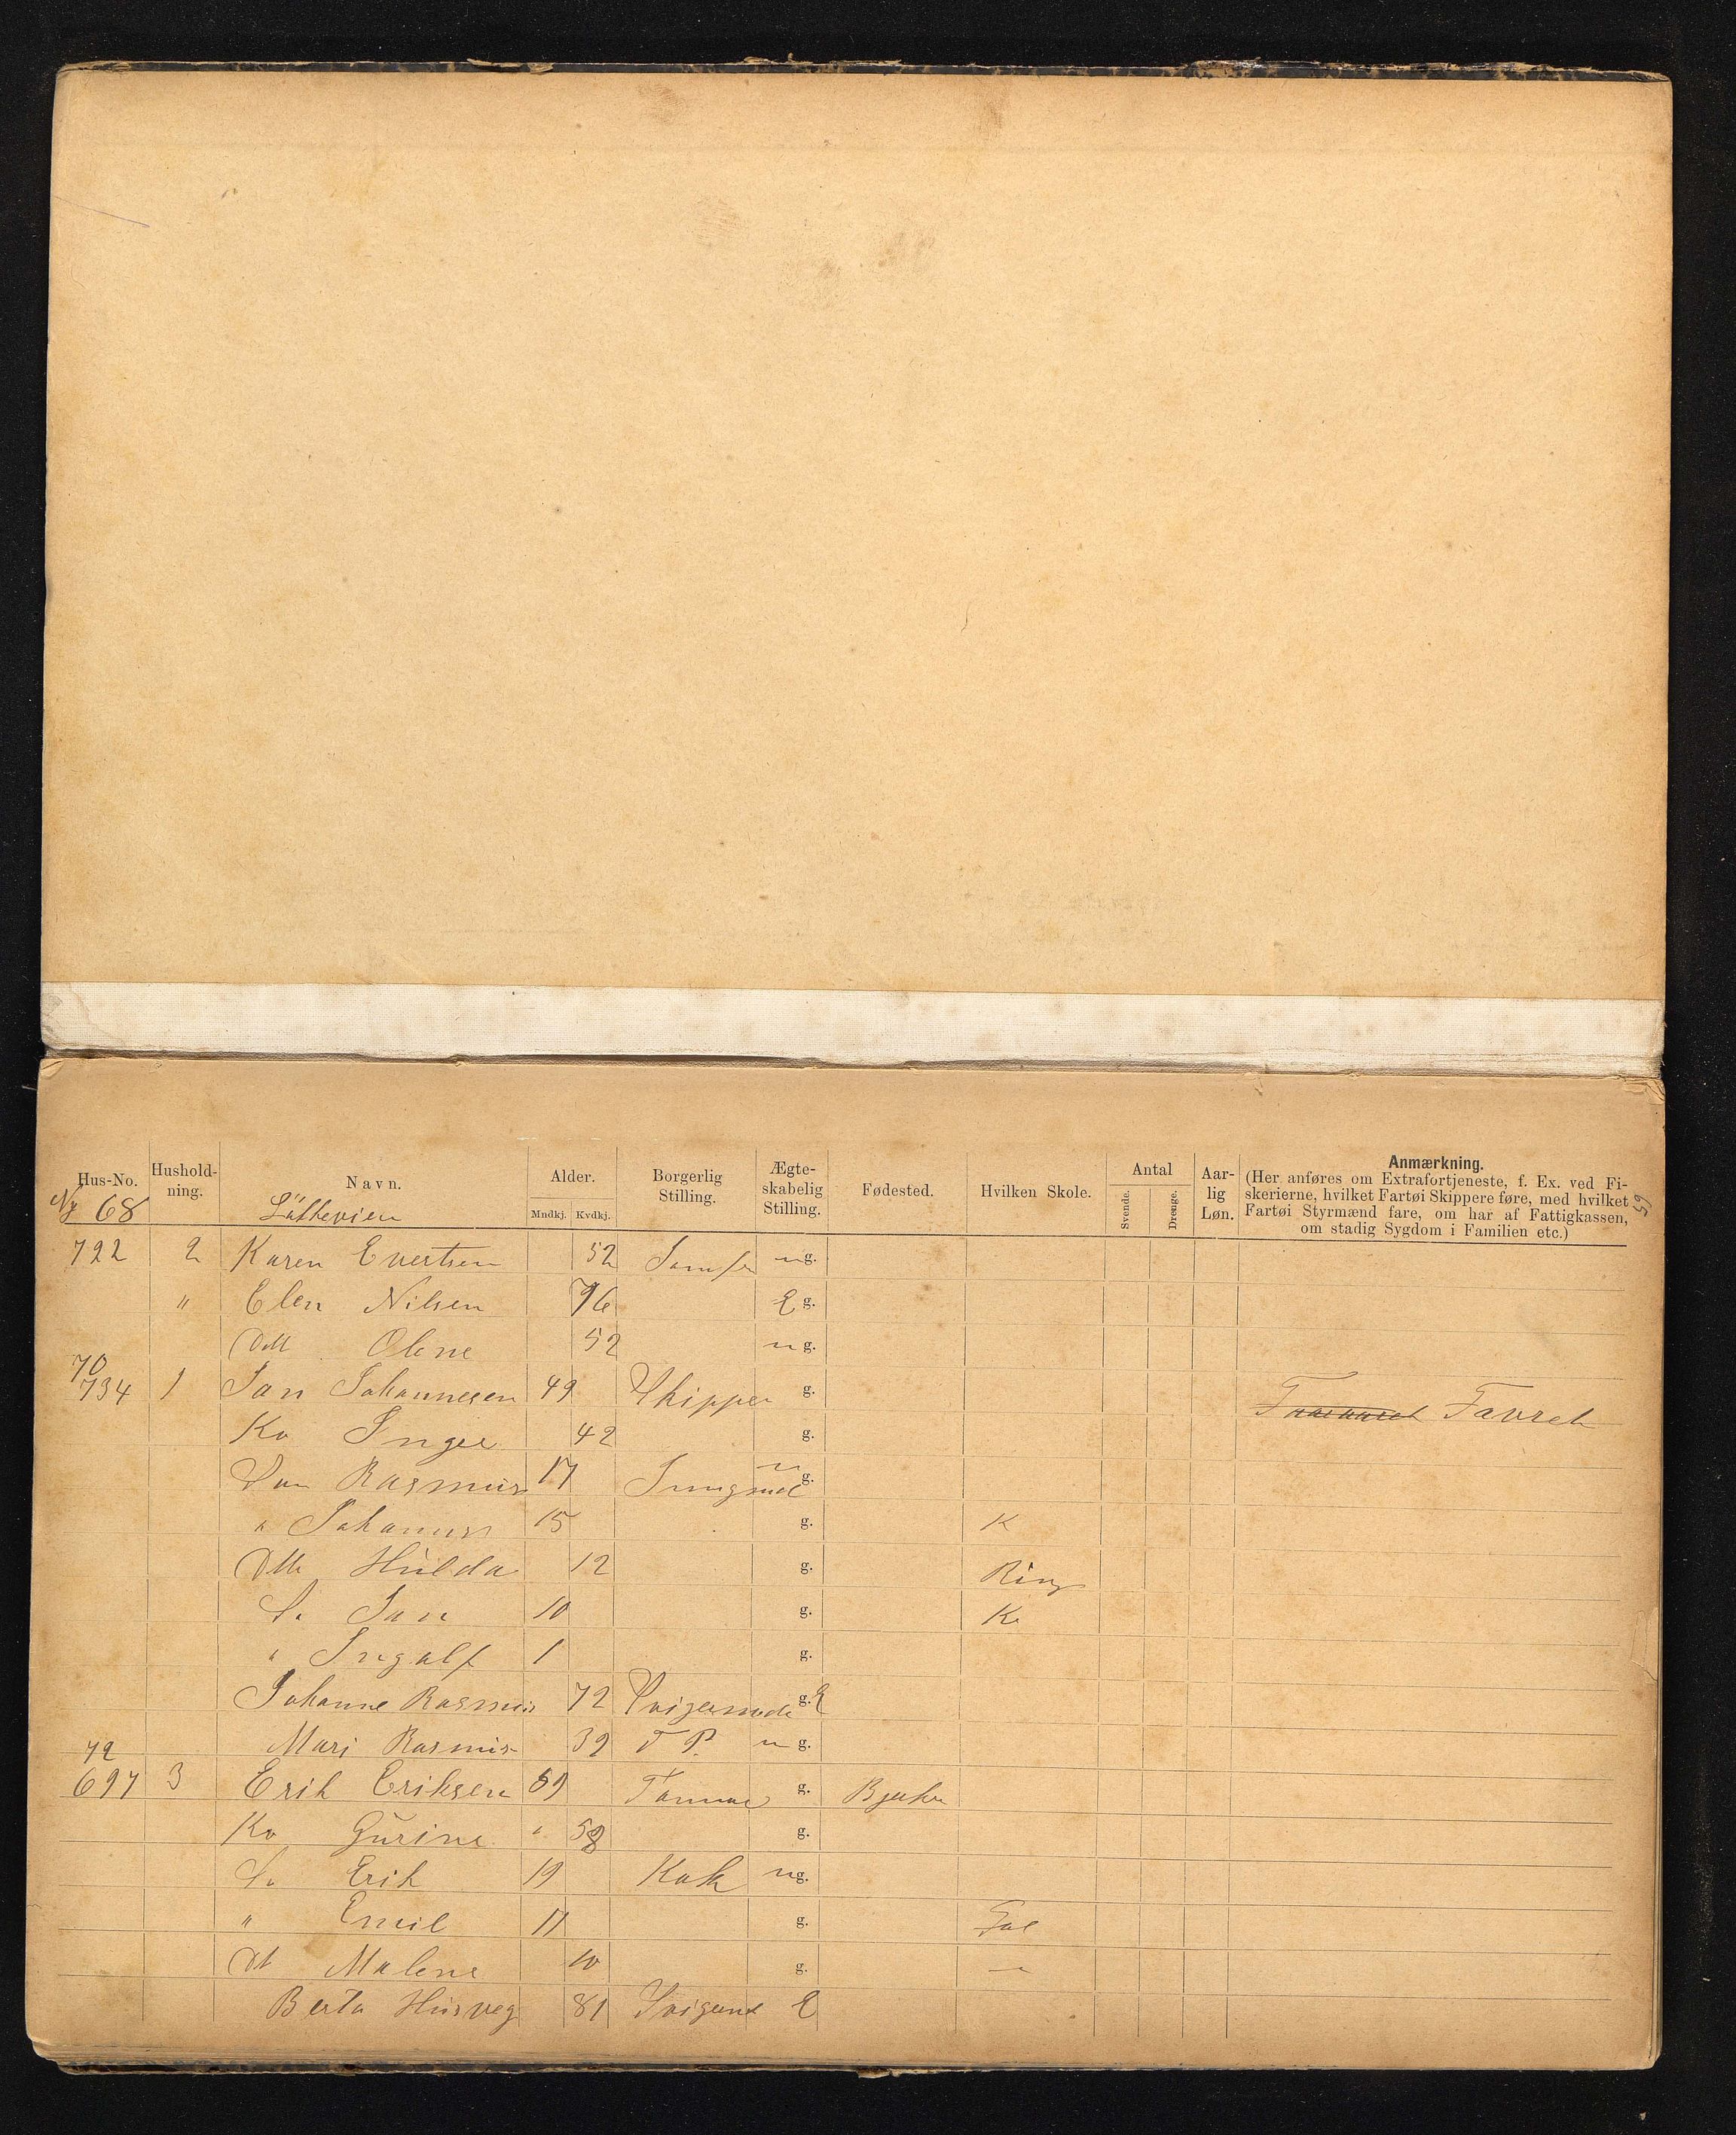 Hus-No. Hushold-ning. Navn. Alder. Mndkj. Kvdkj. Borgerlig Stilling. Ægte-skabelig Stilling. Fødested. Hvilken Skole. Antal Svende. Drenge. Aar-lig Løn. Anmærkning.
(Her anføres om Extrafortjeneste, f. Ex. ved Fi-
skerierne, hvilket Fartøi Skippere føre, med hvilket
Fartøi Styrmænd fare, om har af Fattigkassen,
om stadig Sygdom i Familien etc.)
59
Ny 68
722 2 Karen Evertsen 52 ug.
" Elen Nilsen 76 E g.
Dtt Olene 52 u g.
70
734 1 Jan Johannesen 49 Skipper g. Favret
Ko Inger 42 g.
Søn Rasmus 17 Jungmd u g.
" Johannes 15 g. K
Dtt Hulda 12 g. Ring
Sø Jan 10 g. K
" Ingolf 1 g.
Johanne Rasmus 72 Svigermode g. E
Mari Rasmus 39 T P. u g.
72
697 3 Erik Eriksen 59 Tømme g.
Ko Gurine " 58 g.
Sø Erik 19 Kok ug.
" Emil 11 g.
Dt Malene 10 g. "
Berta Husveg 81 Svigerm E